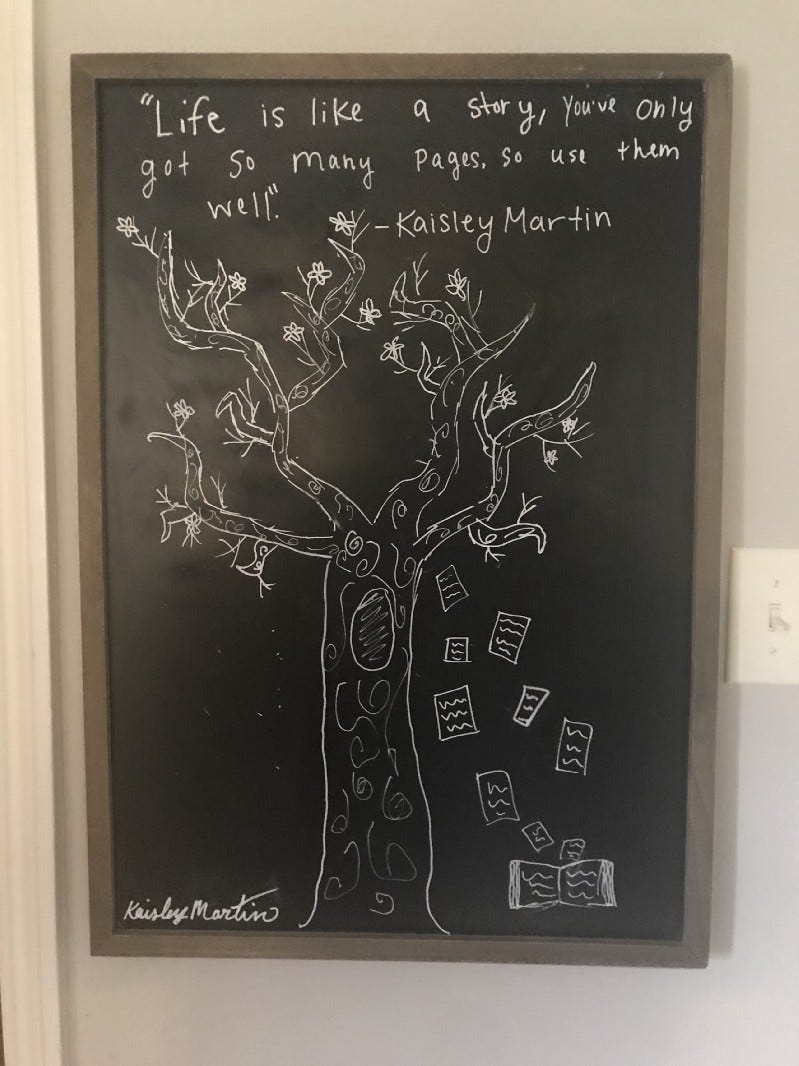 "Life is like a story, You've only
got so many pages, so use them
well".
-Kaisley Martin
Kaisley Martin